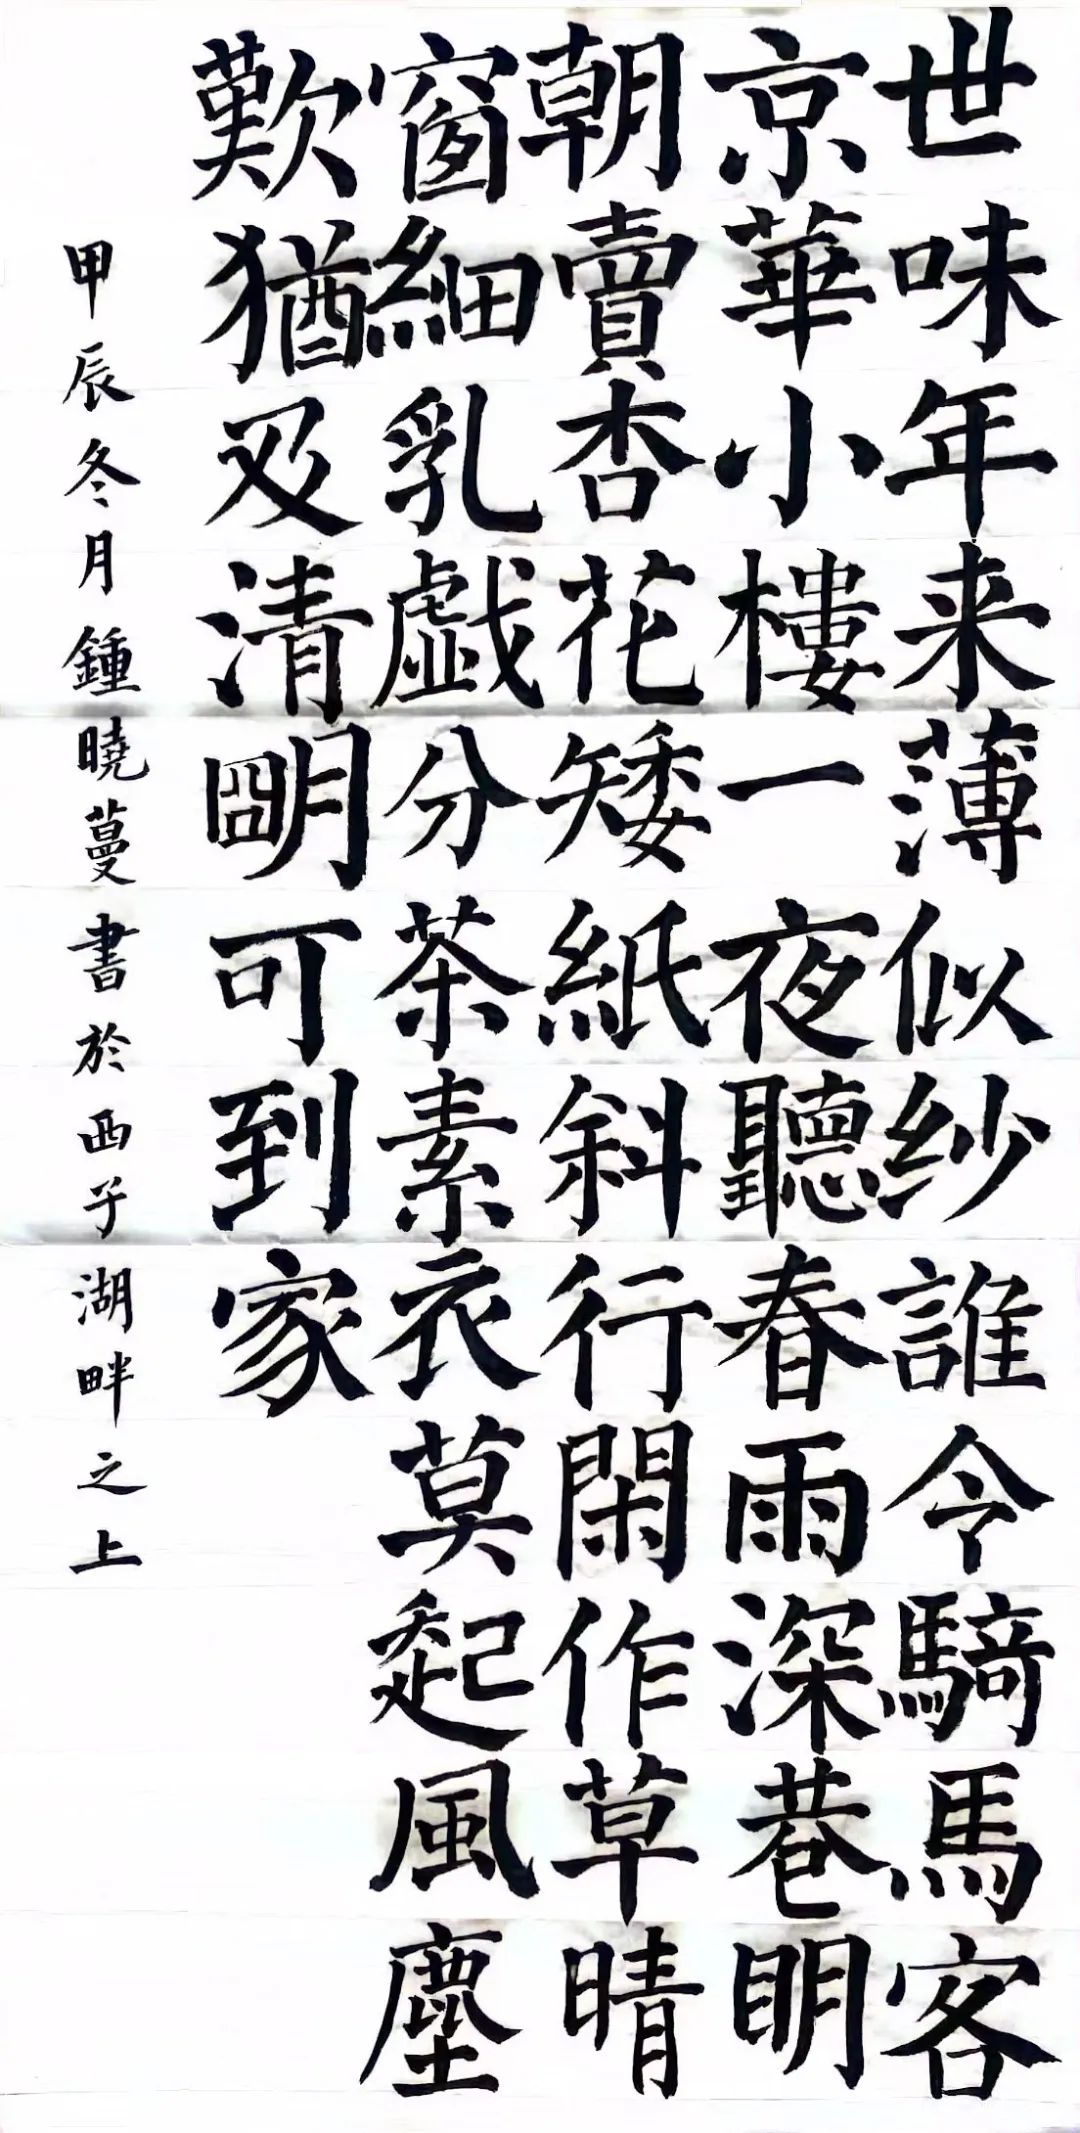 世味年来薄似紗誰令騎馬客
京華小樓一夜聽春雨深巷眀
朝賣杏花矮紙斜行閑作草晴
窗細乳戯分茶素衣莫起風塵
歎猶及清朙可到家
甲辰冬月鍾曉蔓書於西子湖畔之上